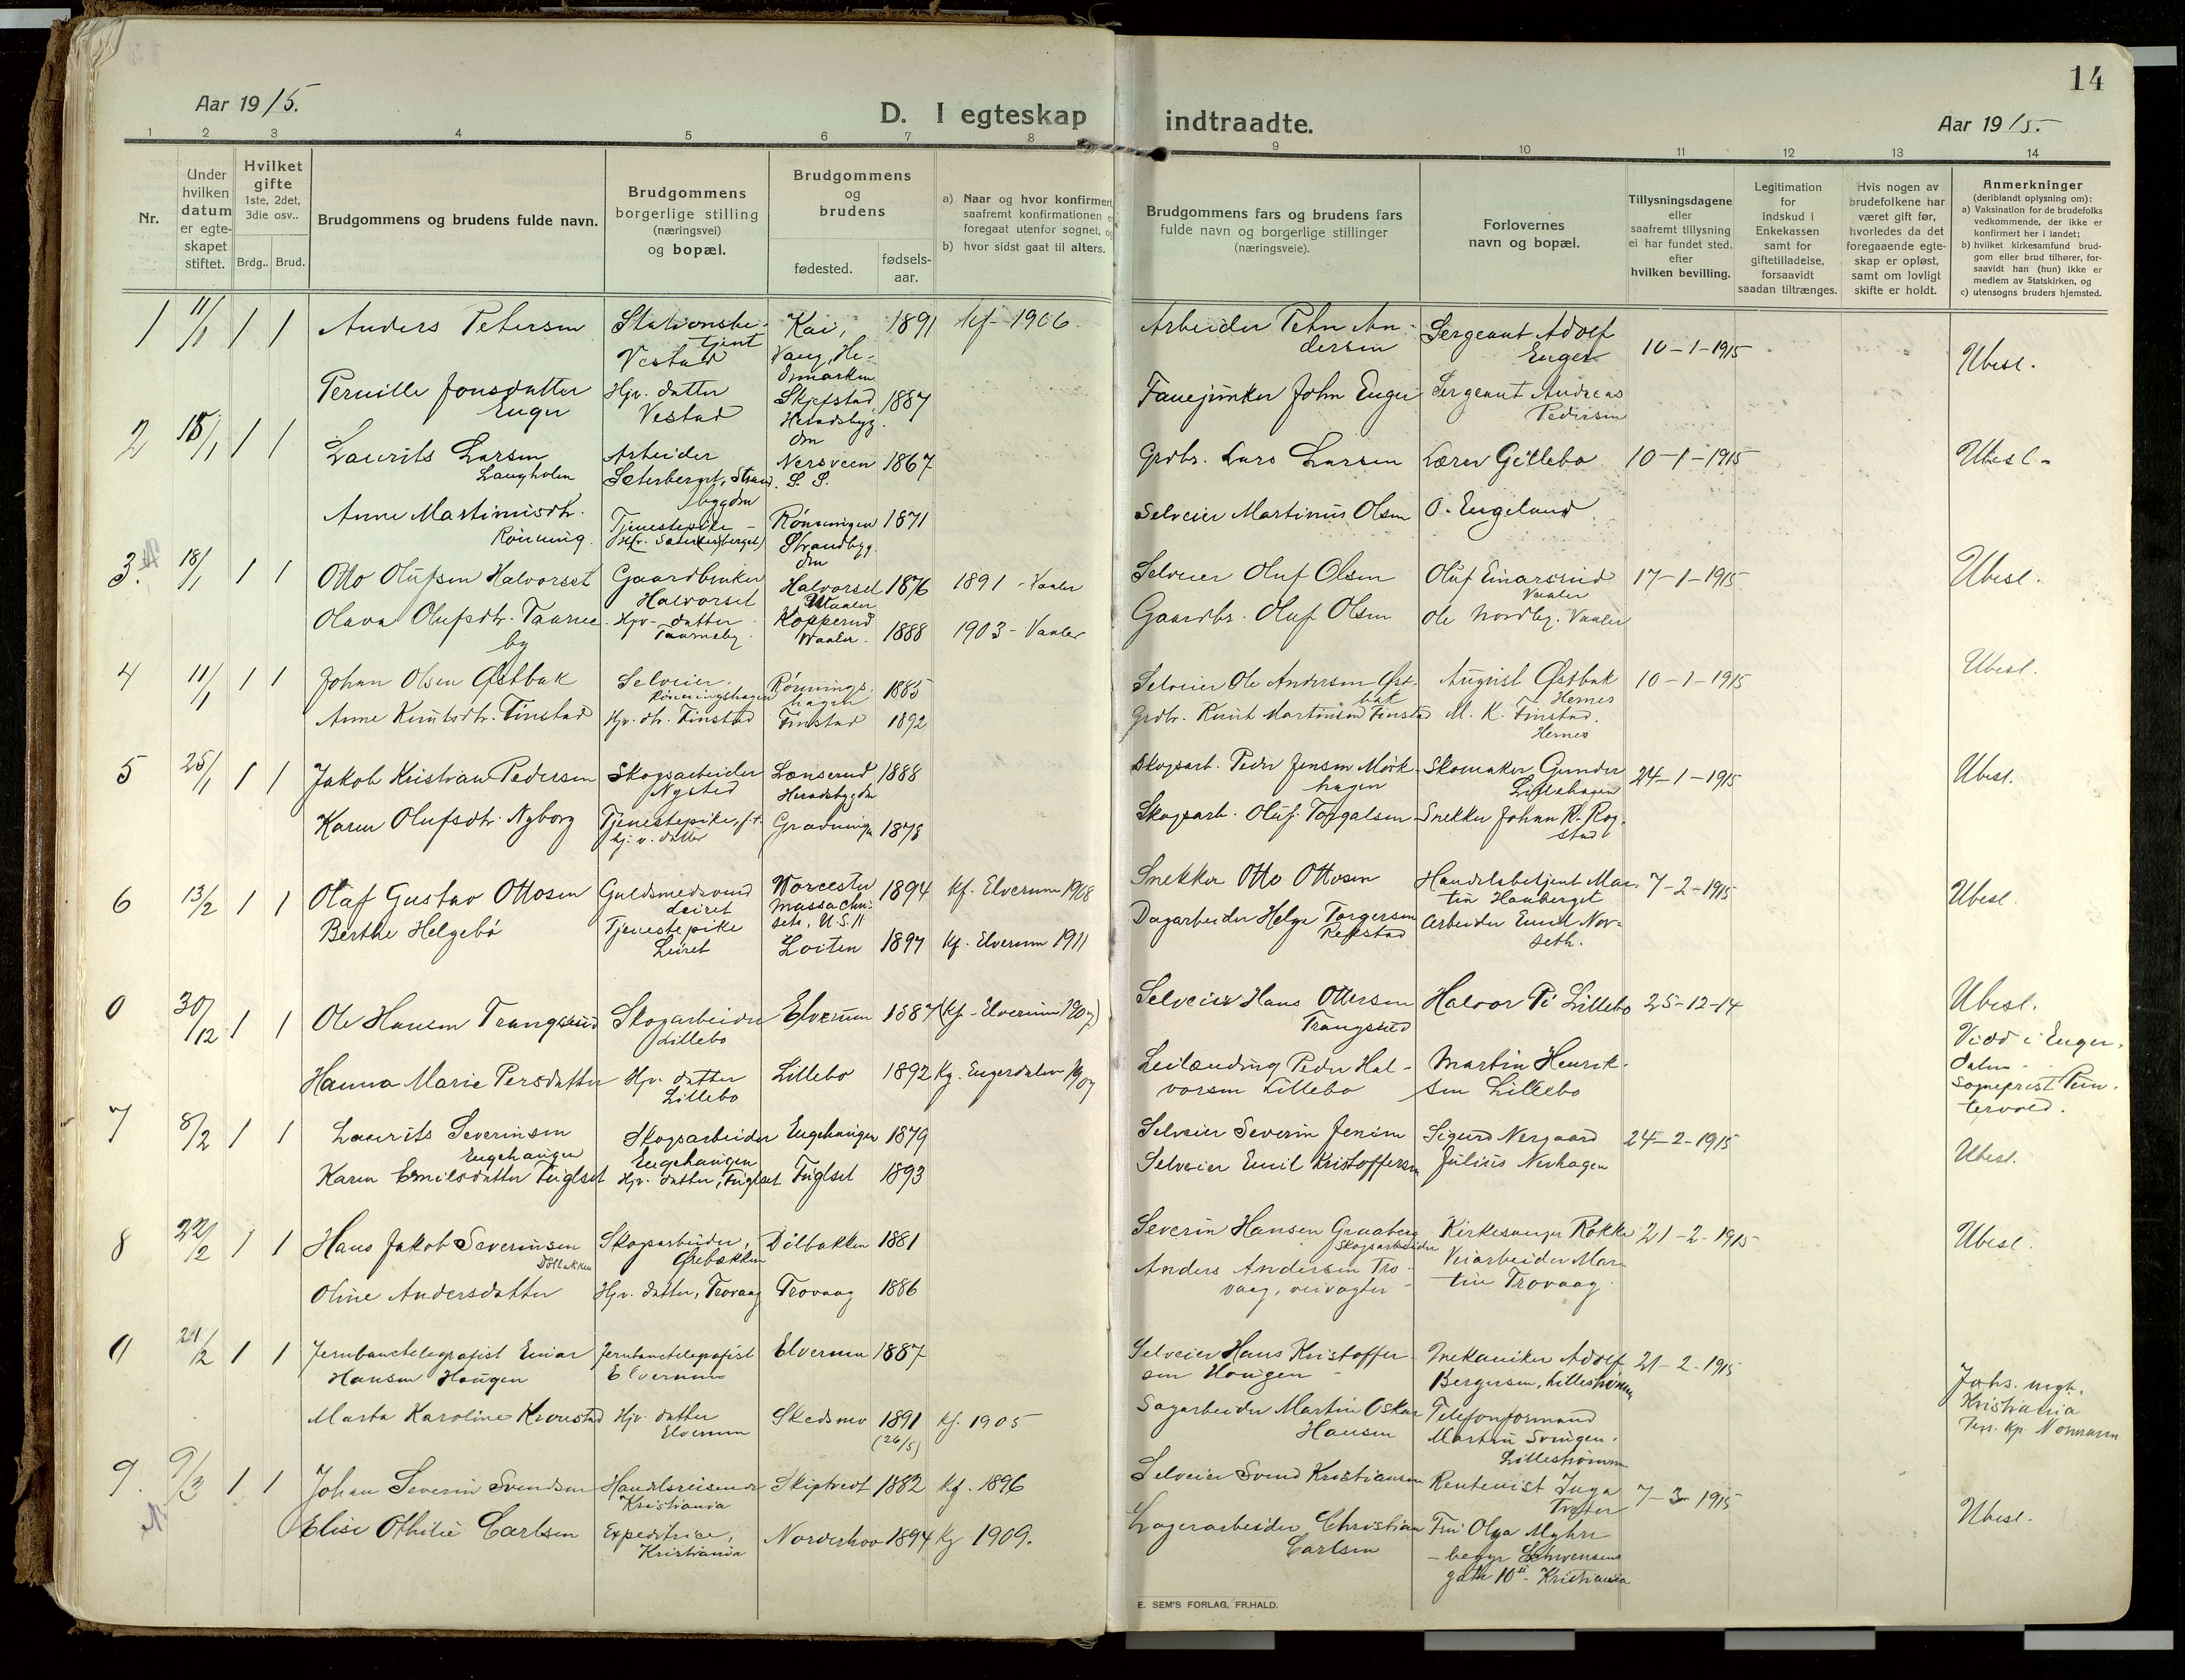 14
Aar 1915.
D. I egteskap indtraadte.
Aar 1915.
1 2 3 4 5 6 7 8 9 10 11 12 13 14
Nr.
Under hvilken datum er egte-skapet stiftet.
Hvilket gifte 1ste, 2det, 3die osv..
Brdg.. Brud.
Brudgommens og brudens fulde navn.
Brudgommens borgerlige stilling (næringsvei) og bopæl.
Brudgommens og brudens
fødested.
fødsels-aar.
a) Naar og hvor konfirmert, saafremt konfirmationen er foregaat utenfor sognet, og
b) hvor sidst gaat til alters.
Brudgommens fars og brudens fars fulde navn og borgerlige stillinger (næringsveie).
Forlovernes navn og bopæl.
Tillysningsdagene eller saafremt tillysning ei har fundet sted, efter hvilken bevilling.
Legitimation for indskud i Enkekassen samt for giftetilladelse, forsaavidt saadan tiltrænges.
Hvis nogen av brudefolkene har været gift før, hvorledes da det foregaaende egte-skap er opløst, samt om lovligt skifte er holdt.
Anmerkninger (deriblandt oplysning om):
a) Vaksination for de brudefolks vedkommende, der ikke er konfirmert her i landet;
b) hvilket kirkesamfund brud-gom eller brud tilhører, for-saavidt han (hun) ikke er medlem av Statskirken, og
c) utensogns bruders hjemsted.
1 11/1 1 1 Anders Petersen Stationsbe-tjent Vestad Kai, Vang, He-dmarken 1891 kf- 1906. Arbeider Peter An-dersen Sergeant Adolf Enger 10-1-1915 Ubesl.
Pernille Jonsdatter Enger Hjv. datter Vestad Skjefstad Heradsbyg-den 1887 Fanejunker John Enger Sergeant Andreas Pedersen
2 15/1 1 1 Laurits Larsen Langholen Arbeider Seterberget, Strand bygden Nersveen S. S. 1867 Grdbr. Lars Larsen Lærer Gillebo 10-1-1915 Ubesl.
Anne Martinusdtr. Rønning. Tjenestepike - Rønningen Strandbyg-den 1871 Selveier Martinus Olsen O. Engeland
3. 18/1 1 1 Otto Olufsen Halvorset Gaardbruker Halvorset Halvorset Vaaler 1876 1891 - Vaaler Selveier Oluf Olsen Oluf Einarsrud Vaaler 17-1-1915 Ubesl.
Olava Olufsdtr. Taarne-by Hjv- datter Taarneby Kopperud Vaaler. 1888 1903 - Vaaler Gaardbr. Oluf Olsen Ole Nordby. Vaaler
4 11/1 1 1 Johan Olsen Østbak Selveier. Rønningshagen Rønnings-hagen 1885 Selveier Ole Andersen Øst-bak August Østbak Hernes 10-1-1915 Ubesl.
Anne Knutsdtr. Finstad Hjv. dtr. Finstad Finstad 1892 Grdbr. Knut Martinsen Finstad M. K. Finstad. Hernes
5 25/1 1 1 Jakob Kristian Pedersen Skogsarbeider Nysted Lønserud Heradsbygden 1888 Skogsarb. Peder Jensen Mørk-hagen Skomaker Gunder Lillehagen 24-1-1915 Ubesl.
Karen Olufsdtr. Nyborg Tjenestepike, hj. v. datter 1878 Skogsarb. Oluf Torgalsen Snekker Johan R. Rog-stad
6 13/2 1 1 Olaf Gustav Ottosen Guldsmedsvend Leiret Worcester Massachu-sets, U.S.A 1894 kf. Elverum 1908 Snekker Otto Ottosen Handelsbetjent Mar-tin Hauberget 7-2-1915 Ubesl.
Berthe Helgebø Tjenestepike Leiret Løiten 1897 kf. Elverum 1911 Dagarbeider Helge Torgersen Refstad Arbeider Emil Nor-seth.
0 30/12 1 1 Ole Hansen Trangsrud Skogarbeider Lillebo Elverum 1887 (kf- Elverum 1907) Selveier Hans Ottersen Trangsrud Halvor P. Lillebo 25-12-14 Ubesl. Viod i Enger-dalen - Sogneprest
Hanna Marie Persdatter Hjv. datter Lillebo Lillebo 1892 kf. Engerdalen 1907 Leilænding Peder Hal-vorsen Lillebo Martin Henrik-sen Lillebo
7 8/2 1 1 Laurits Severinsen Engehaugen Skogsarbeider Engehaugen Engehaugen 1879 Selveier Severin Jensen Sigurd Nergaard 24-2-1915 Ubesl.
Karen Emilsdatter Fuglset Hjv. datter, Fuglset. Fuglset 1893 Selveier Emil Kristoffersen Julius Nerhagen
8 22/2 1 1 Hans Jakob Severinsen Dølbakken Skogsarbeider, Ørebækken Dølbakken 1881 Severin Hansen Graaberg skogsarbeider Kirkesanger Rokke 21-2-1915 Ubesl.
Oline Andersdatter Hjv. datter, Trovaag Trovaag 1886 Anders Andersen Tro-vaag, veivogter Veiarbeider Mar-tin Trovaag.
0 21/2 1 1 Jernbanetelegrafist Einar Hansen Haugen Jernbanetelegrafist Elverum Elverum 1887 Selveier Hans Kristoffer-sen Haugen - Mekaniker Adolf Bergersen, Lillestrømm 21-2-1915 Jahs. mgh. Kristiania Pers. Kp. Normann
Marta Karoline Kronstad Hjv. datter Elverum Skedsmo 1891 (26/5) kf. 1905 Sagarbeider Martin Oskar Hansen Telefonformand Martin Svingen. Lillestrømm
9. 9/3 1 1 Johan Severin Svendsen Handelsreisende Kristiania Skiptvedt 1882 kf. 1896 Selveier Svend Kristiansen Rentenist Inga Trøter 7-3-1915 Ubesl.
Elise Othilie Carlsen Expeditrice, Kristiania Norderhov 1894 kf 1909. Lagerarbeider Christian Carlsen Fru Olga Myhre - begge Schwensens gate 10 - Kristiania
E. SEM'S FORLAG, FR.HALD.